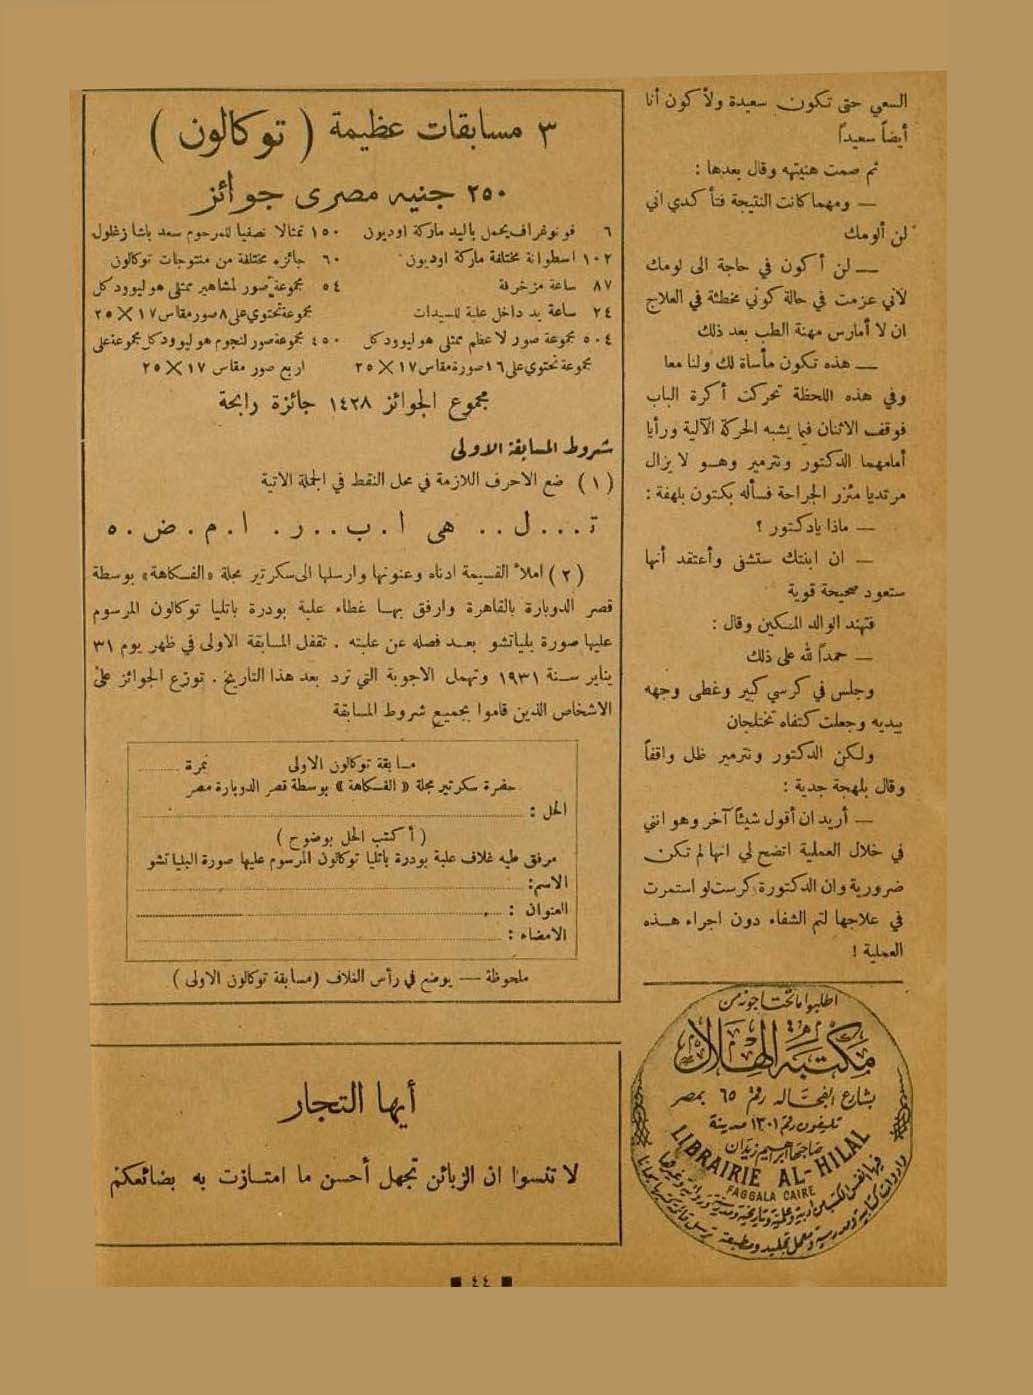 السعي حتى تكون سعيدة ولأكون أنا
أيضاً سعيداً
ثم صمت هنيهه وقال بعدها :
— ومهما كانت النتيجة فتأكدي اني
لن ألومك
— لن أكون في حاجة الى لومك
لأني عزمت في حالة كوني مخطئة في العلاج
ان لا أمارس مهنة الطب بعد ذلك
— هذه تكون مأساة لك ولنا معا
وفي هذه اللحظة تحركت أكرة الباب
فوقف الاثنان فيما يشبه الحركة الآلية ورأيا
أمامهما الدكتور ونترمير وهو لا يزال
مرتديا مئزر الجراحة فسأله بكتون بلهفة :
— ماذا يادكتور ؟
— ان ابنتك ستشفى وأعتقد أنها
ستعود صحيحة قوية
فتنهد الوالد المسكين وقال :
— حمداً لله على ذلك
وجلس في كرسي كبير وغطى وجهه
بيديه وجعلت كتفاه تختلجان
ولكن الدكتور ونترمير ظل واقفاً
وقال بلهجة جدية :
— أريد ان أقول شيئاً آخر وهو انني
في خلال العملية اتضح لي انها لم تكن
ضرورية وان الدكتورة كرست لو استمرت
في علاجها لتم الشفاء دون اجراء هذه
العملية !
اطلبوا ما تحتاجونه من
مكتبة الهلال
بشارع الفجاله رقم ٦٥ بمصر
تليفون رقم ١٣٠١ مدينة
صاحبها ابراهيم زيدان
LIBRAIRIE AL-HILAL
FAGGALA CAIRE
٣ مسابقات عظيمة ( توكالون )
٢٥٠ جنيه مصرى جوائز
٦ فونوغراف يحمل باليد ماركة اوديون
١٠٢ اسطوانة مختلفة ماركة اوديون
٨٧ ساعة مزخرفة
٢٤ ساعة يد داخل علبة للسيدات
٥٠٤ مجموعة صور لاعظم ممثلى هوليوود كل
مجموعة تحتوي على ١٦ صورة مقاس ١٧ × ٢٥
١٥٠ تمثالا نصفيا للمرحوم سعد باشا زغلول
٦٠ جائزه مختلفة من منتوجات توكالون
٥٤ مجموعة صور لمشاهير ممثلى هوليوود كل
مجموعة تحتوي على ٨ صور مقاس ١٧ × ٢٥
٤٥٠ مجموعة صور لنجوم هوليوود كل مجموعة على
اربع صور مقاس ١٧ × ٢٥
مجموع الجوائز ١٤٢٨ جائزة رابحة
شروط المسابقة الاولى
( ١ ) ضع الاحرف اللازمة في محل النقط في الجملة الاتية
ت . . . ل . . هى ا . ب . . ر . ا . م . ض . ه
( ٢ ) املأ القسيمة ادناه وعنونها وارسلها الى سكرتير مجلة «الفكاهة» بوسطة
قصر الدوبارة بالقاهرة وارفق بها غطاء علبة بودرة باتليا توكالون المرسوم
عليها صورة بلياتشو بعد فصله عن علبته . تقفل المسابقة الاولى في ظهر يوم ٣١
يناير سنة ١٩٣١ وتهمل الاجوبة التي ترد بعد هذا التاريخ . توزع الجوائز على
الاشخاص الذين قاموا بجميع شروط المسابقة
مسابقة توكالون الاولى نمرة ..........
حضرة سكرتير مجلة « الفكاهة » بوسطة قصر الدوبارة مصر
الحل :
( أكتب الحل بوضوح )
مرفق طيه غلاف علبة بودرة باتليا توكالون المرسوم عليها صورة البلياتشو
الاسم:
العنوان :
الامضاء :
ملحوظة — يوضع في رأس الغلاف (مسابقة توكالون الاولى )
أيها التجار
لا تنسوا ان الزبائن تجهل أحسن ما امتازت به بضائعكم
٤٤